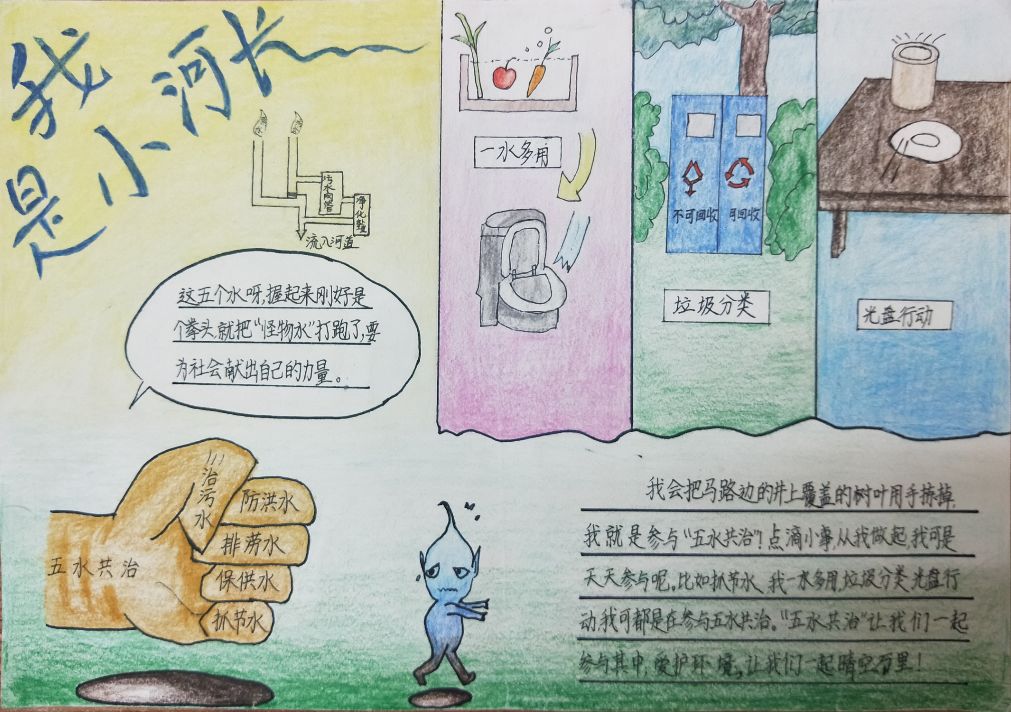 我是小河长
污水网管
净化整
流入河道
这五个水呀,握起来刚好是
个拳头,就把“怪物水”打跑了,要
为社会献出自己的力量。
一水多用
不可回收
可回收
垃圾分类
光盘行动
五水共治
治污水
防洪水
排涝水
保供水
抓节水
我会把马路边的井上覆盖的树叶用手捺掉,
我就是参与“五水共治”!点滴小事,从我做起,我可是
天天参与呢。比如抓节水 我一水多用,垃圾分类 光盘行
动,我可都是在参与五水共治。“五水共治”让我们一起
参与其中,爱护环境。让我们一起晴空百里!